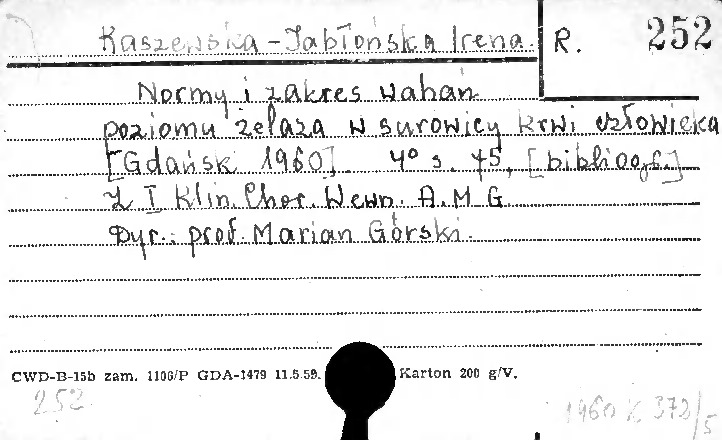 Kaszewska-Jabłońska Irena. R. 252
Normy i zakres wahań
poziomu żelaza w surowicy krwi człowieka
[Gdańsk 1960] 4° s. 75, [bibliogr.]
Z I Klin. Chor. Wewn. A.M.G.
Dyr.: prof. Marian Górski.
CWD-B-15b zam. 1106/P GDA-1479 11.5.59. Karton 200 g/V.
252 1960 K 372/5